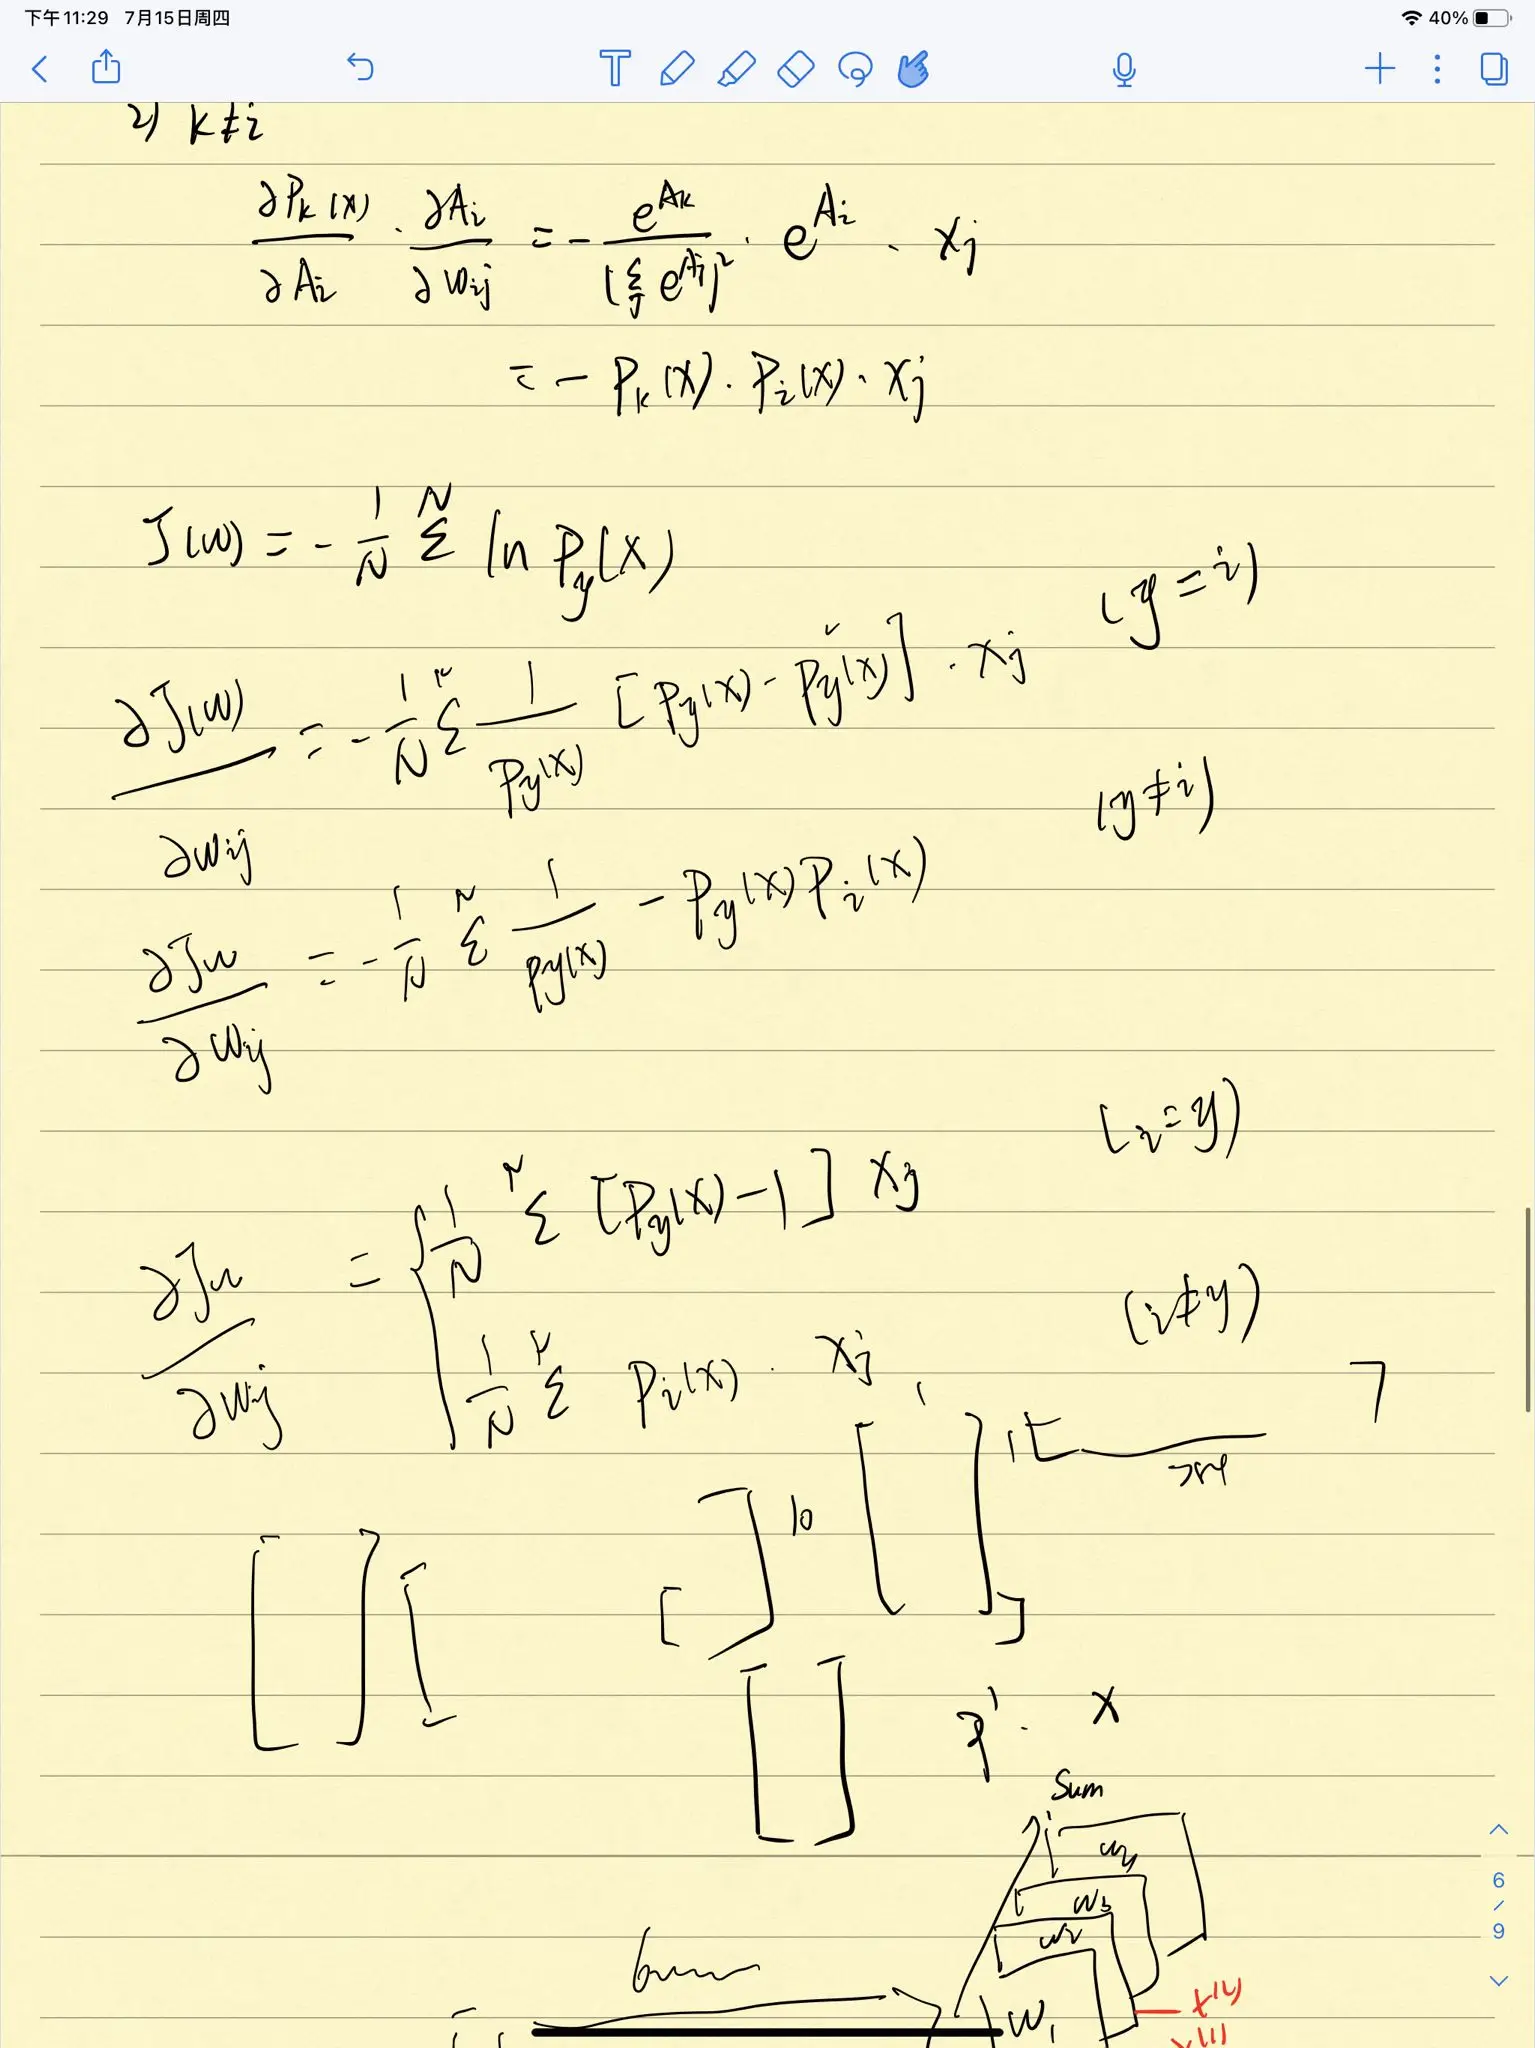 下午11:29 7月15日周四
40%
2) k≠i
∂Pk(x)/∂Ai · ∂Ai/∂wij = - e^Ak/(Σj e^Aj)² · e^Ai · xj
= - Pk(x) · Pi(x) · xj
J(w) = - 1/N Σ^N ln Py(x)
∂J(w)/∂wij = - 1/N Σ^N 1/Py(x) [Py(x) - Py²(x)] · xj (y=i)
∂Jw/∂wij = - 1/N Σ^N 1/Py(x) - Py(x)Pi(x) (y≠i)
∂Jw/∂wij = { 1/N Σ^N [Py(x)-1] xj (i=y)
1/N Σ^N Pi(x) · xj (i≠y)
1
1
10
P' · x
Sum
w4
w3
w2
w1
6
/
9